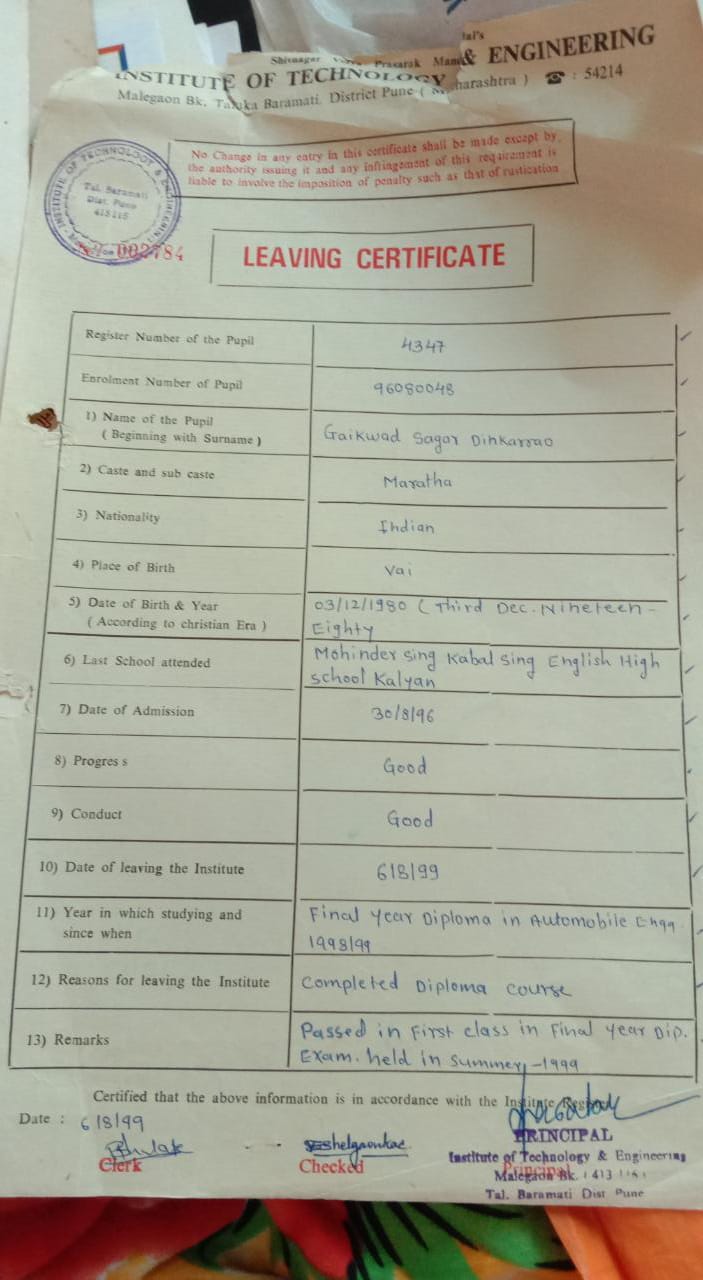 Shivnagar Vidya Prasarak Mandal's
INSTITUTE OF TECHNOLOGY & ENGINEERING
Malegaon Bk. Taluka Baramati. District Pune ( Maharashtra ) ☎ : 54214
No Change in any entry in this certificate shall be made except by
the authority issuing it and any infringement of this requirement is
liable to involve the imposition of penalty such as that of rustication
INSTITUTE OF TECHNOLOGY & ENGINEERING
Tal. Baramati
Dist. Pune
413115
002784
LEAVING CERTIFICATE
Register Number of the Pupil 4347
Enrolment Number of Pupil 96080048
1) Name of the Pupil
( Beginning with Surname ) Gaikwad Sagar Dinkarrao
2) Caste and sub caste Maratha
3) Nationality Indian
4) Place of Birth Vai
5) Date of Birth & Year 03/12/1980 ( Third Dec. Nineteen -
( According to christian Era ) Eighty
6) Last School attended Mohinder Sing Kabal Sing English High
School Kalyan
7) Date of Admission 30/8/96
8) Progres s Good
9) Conduct Good
10) Date of leaving the Institute 6/8/99
11) Year in which studying and Final Year Diploma in Automobile Engg.
since when 1998/99
12) Reasons for leaving the Institute Completed Diploma course
13) Remarks Passed in First class in Final Year Dip.
Exam. held in summer -1999
Certified that the above information is in accordance with the Institute Register
Date : 6/8/99
Clerk Checked Principal
PRINCIPAL
Institute of Technology & Engineering
Malegaon Bk.
Tal. Baramati Dist Pune